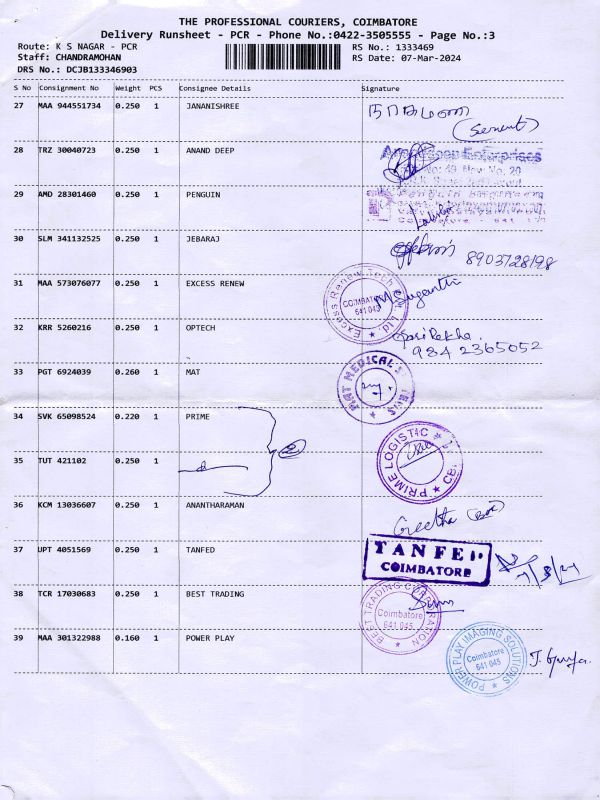 THE PROFESSIONAL COURIERS, COIMBATORE
Delivery Runsheet - PCR - Phone No.:0422-3505555 - Page No.:3
Route: K S NAGAR - PCR
RS No.: 1333469
Staff: CHANDRAMOHAN
RS Date: 07-Mar-2024
DRS No.: DCJB133346903
S No Consignment No Weight PCS Consignee Details Signature
27 MAA 944551734 0.250 1 JANANISHREE
(Servent)
28 TRZ 30040723 0.250 1 ANAND DEEP
Enterprises
No: 49 New No. 20
29 AMD 28301460 0.250 1 PENGUIN
30 SLM 341132525 0.250 1 JEBARAJ
8903728198
31 MAA 573076077 0.250 1 EXCESS RENEW
Excess Renew Tech Ltd.
COIMBATORE
641 045
Suganthi
32 KRR 5260216 0.250 1 OPTECH
9842365052
33 PGT 6924039 0.260 1 MAT
MAT MEDICAL
34 SVK 65098524 0.220 1 PRIME
2
PRIME LOGISTIC CBE
35 TUT 421102 0.250 1
36 KCM 13036607 0.250 1 ANANTHARAMAN
Geetha
37 UPT 4051569 0.250 1 TANFED
TANFED
COIMBATORE
7/3/24
38 TCR 17030683 0.250 1 BEST TRADING
BEST TRADING CORPORATION
Coimbatore
641 045
39 MAA 301322988 0.160 1 POWER PLAY
POWER PLAY IMAGING SOLUTIONS
Coimbatore
641 045